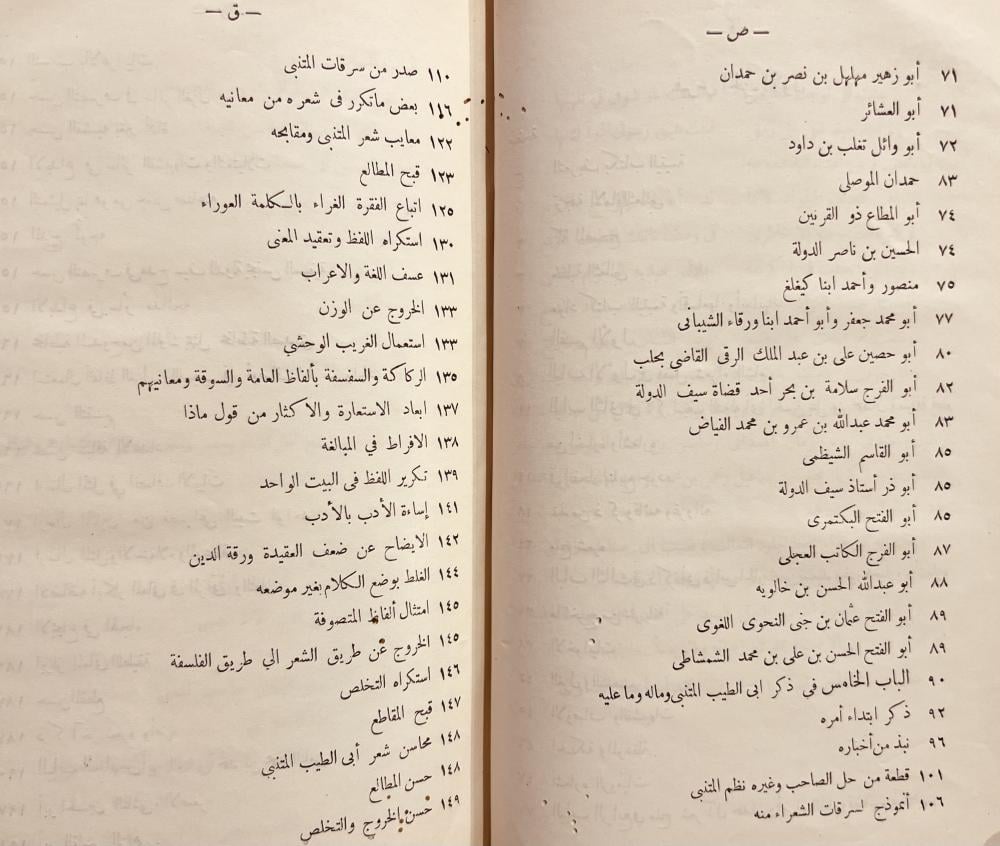 — ص —
٧١ أبو زهير مهلهل بن نصر بن حمدان
٧١ أبو العشائر
٧٢ أبو وائل تغلب بن داود
٨٣ حمدان الموصلى
٧٤ أبو المطاع ذو القرنين
٧٤ الحسين بن ناصر الدولة
٧٥ منصور وأحمد ابنا كيغلغ
٧٧ أبو محمد جعفر وأبو أحمد ابنا ورقاء الشيبانى
٨٠ أبو حصين على بن عبد الملك الرقى القاضي بحلب
٨٢ أبو الفرج سلامة بن بحر أحد قضاة سيف الدولة
٨٣ أبو محمد عبدالله بن عمرو بن محمد الفياض
٨٥ أبو القاسم الشيظمى
٨٥ أبو ذر أستاذ سيف الدولة
٨٥ أبو الفتح البكتمرى
٨٧ أبو الفرج الكاتب العجلى
٨٨ أبو عبدالله الحسن بن خالويه
٨٩ أبو الفتح عثمان بن جنى النحوى اللغوى
٨٩ أبو الفتح الحسن بن على بن محمد الشمشاطى
٩٠ الباب الخامس في ذكر ابى الطيب المتنبى وماله وما عليه
٩٢ ذكر ابتداء أمره
٩٦ نبذ من أخباره
١٠١ قطعة من حل الصاحب وغيره نظم المتنبى
١٠٦ أنموذج لسرقات الشعراء منه
— ق —
١١٠ صدر من سرقات المتنبى
١١٦ بعض ماتكرر فى شعره من معانيه
١٢٢ معايب شعر المتنبى ومقابحه
١٢٣ قبح المطالع
١٢٥ اتباع الفقرة الغراء بالكلمة العوراء
١٣٠ استكراه اللفظ وتعقيد المعنى
١٣١ عسف اللغة والاعراب
١٣٣ الخروج عن الوزن
١٣٣ استعمال الغريب الوحشي
١٣٥ الركاكة والسفسفة بألفاظ العامة والسوقة ومعانيهم
١٣٧ ابعاد الاستعارة والاكثار من قول ماذا
١٣٨ الافراط في المبالغة
١٣٩ تكرير اللفظ فى البيت الواحد
١٤١ إساءة الأدب بالأدب
١٤٢ الايضاح عن ضعف العقيدة ورقة الدين
١٤٤ الغلط بوضع الكلام بغير موضعه
١٤٥ امتثال ألفاظ المتصوفة
١٤٥ الخروج عن طريق الشعر الي طريق الفلسفة
١٤٦ استكراه التخلص
١٤٧ قبح المقاطع
١٤٨ محاسن شعر أبى الطيب المتنبى
١٤٨ حسن المطالع
١٤٩ حسن الخروج والتخلص